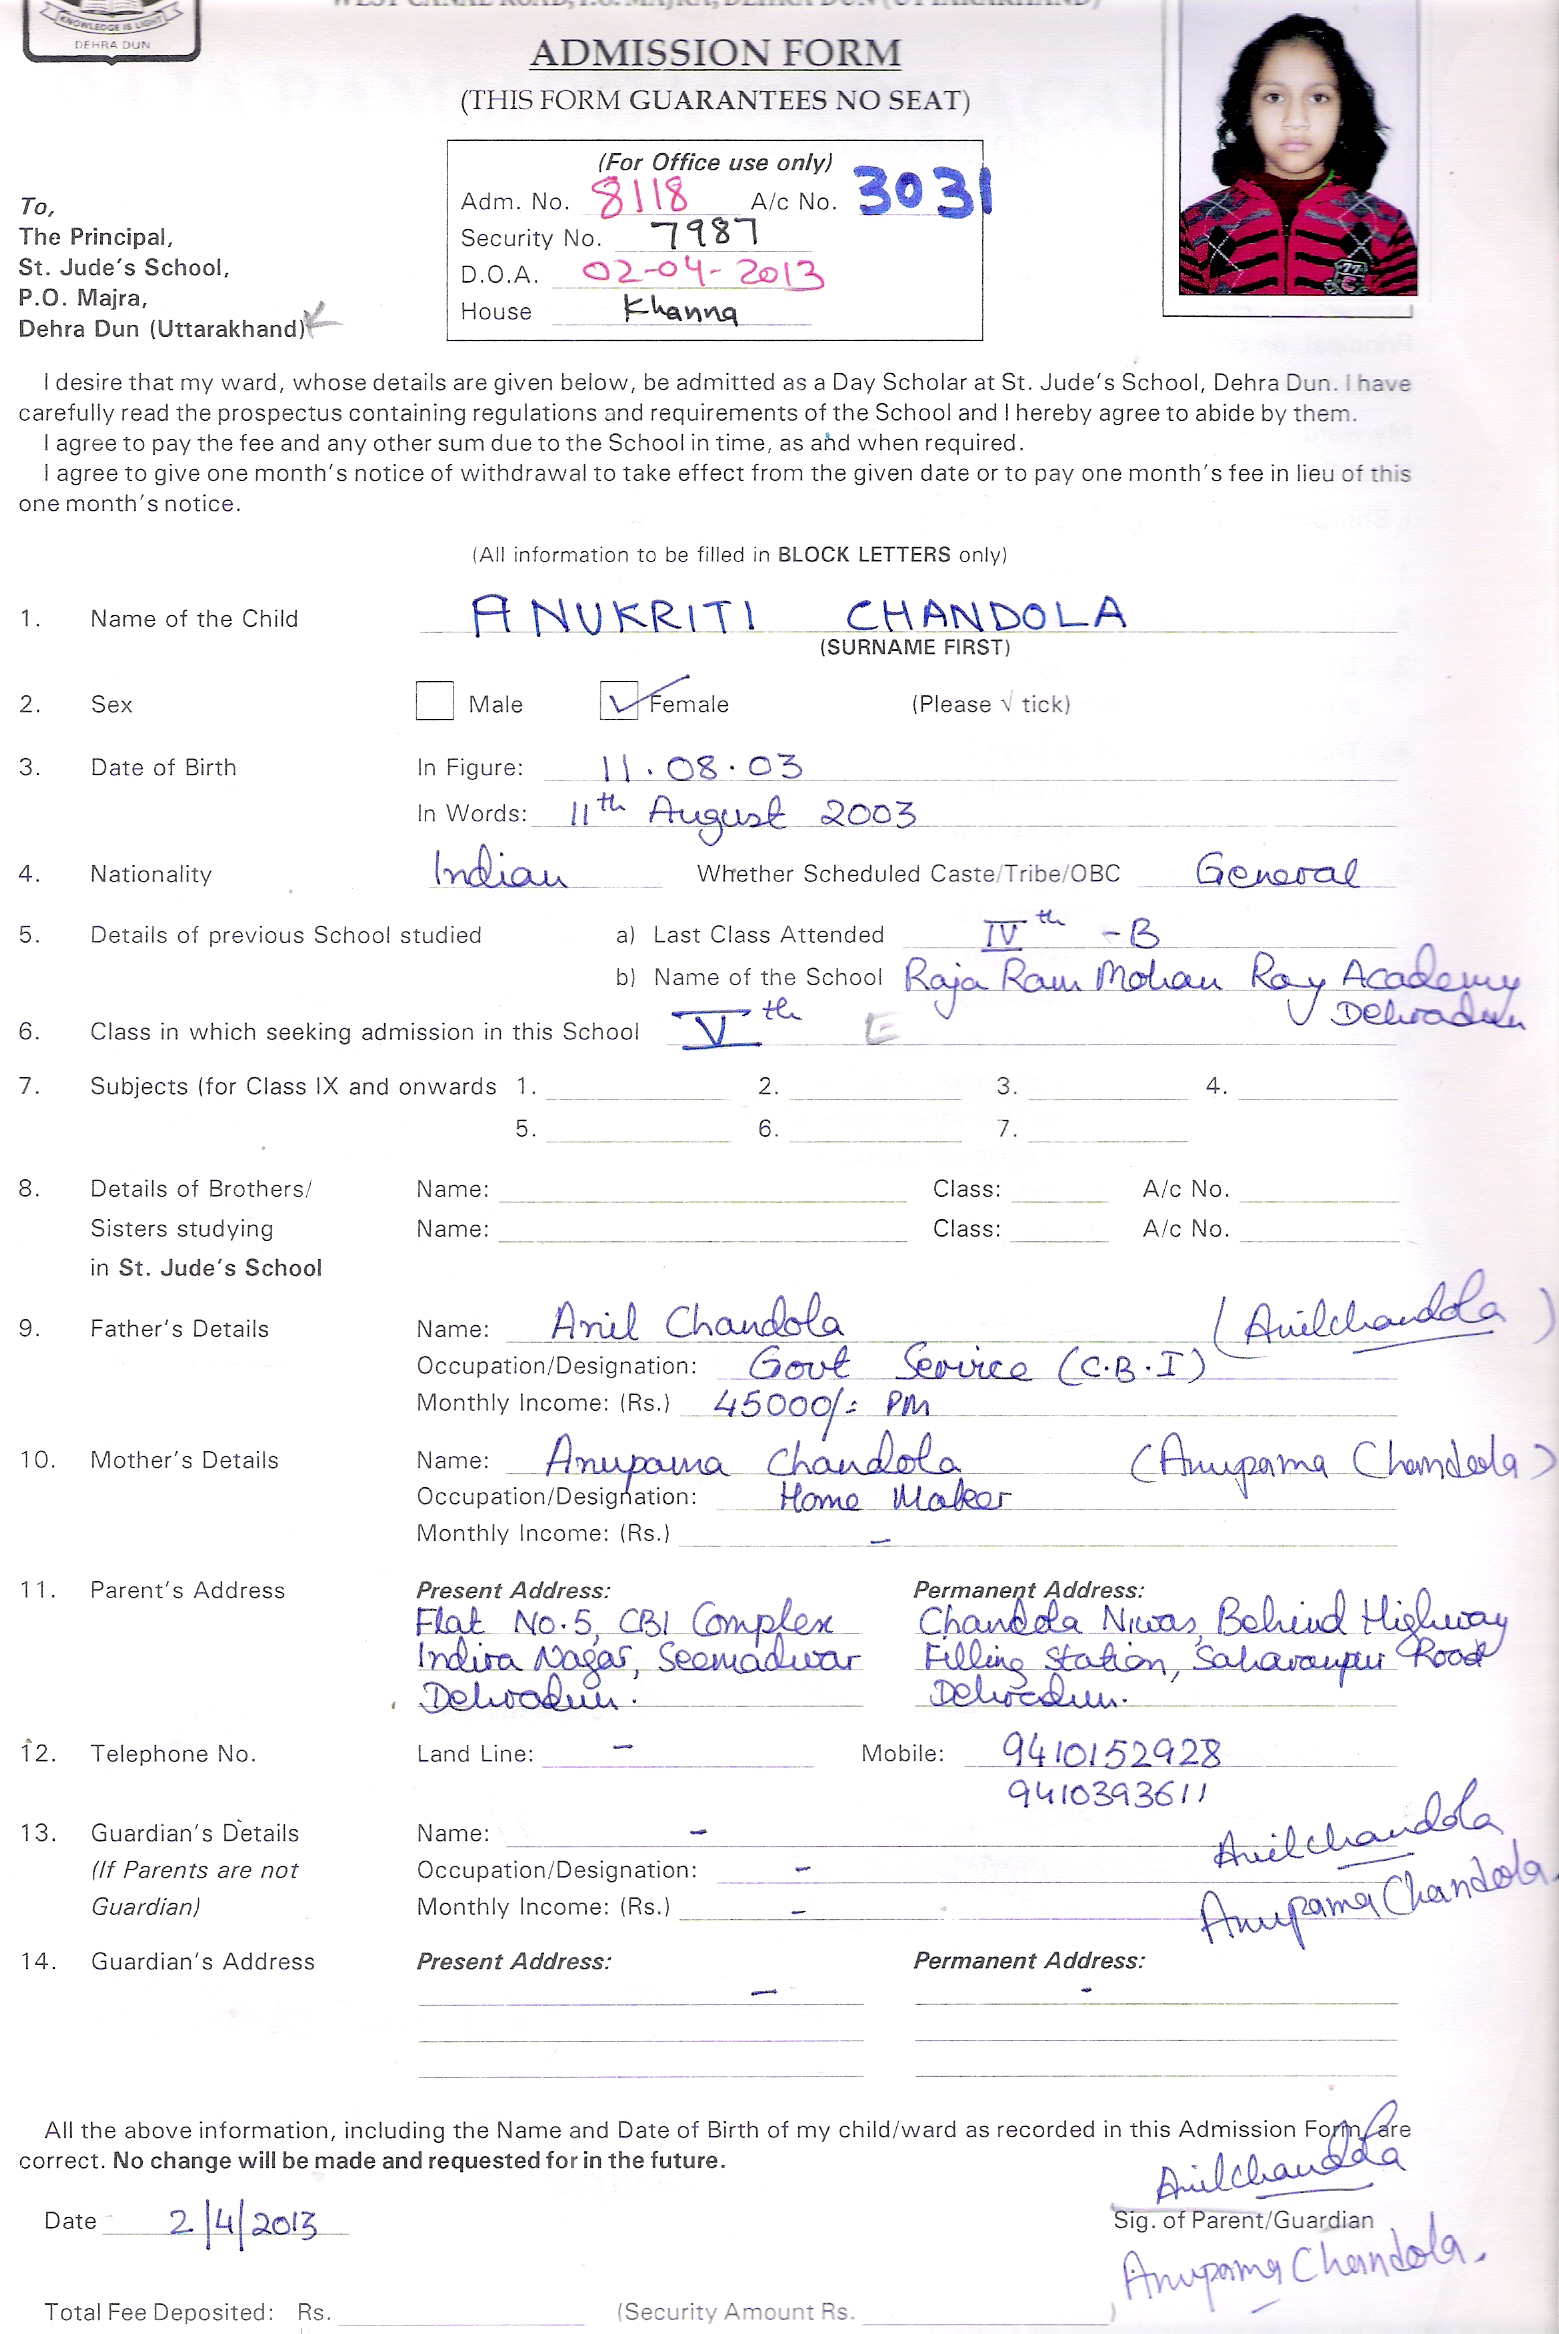 KNOWLEDGE IS LIGHT
DEHRA DUN
WEST CANAL ROAD, P.O. MAJRA, DEHRA DUN (UTTARAKHAND)
ADMISSION FORM
(THIS FORM GUARANTEES NO SEAT)
(For Office use only)
Adm. No. 8118 A/c No. 3031
Security No. 7987
D.O.A. 02-04-2013
House Khanna
To,
The Principal,
St. Jude's School,
P.O. Majra,
Dehra Dun (Uttarakhand)
I desire that my ward, whose details are given below, be admitted as a Day Scholar at St. Jude's School, Dehra Dun. I have
carefully read the prospectus containing regulations and requirements of the School and I hereby agree to abide by them.
I agree to pay the fee and any other sum due to the School in time, as and when required.
I agree to give one month's notice of withdrawal to take effect from the given date or to pay one month's fee in lieu of this
one month's notice.
(All information to be filled in BLOCK LETTERS only)
1. Name of the Child ANUKRITI CHANDOLA
(SURNAME FIRST)
2. Sex Male ✓ Female (Please √ tick)
3. Date of Birth In Figure: 11.08.03
In Words: 11th August 2003
4. Nationality Indian Whether Scheduled Caste/Tribe/OBC General
5. Details of previous School studied a) Last Class Attended IVth -B
b) Name of the School Raja Ram Mohan Roy Academy
Dehradun
6. Class in which seeking admission in this School Vth E
7. Subjects (for Class IX and onwards 1. 2. 3. 4.
5. 6. 7.
8. Details of Brothers/ Name: Class: A/c No.
Sisters studying Name: Class: A/c No.
in St. Jude's School
9. Father's Details Name: Anil Chandola (Anilchandola)
Occupation/Designation: Govt Service (C.B.I)
Monthly Income: (Rs.) 45000/= PM
10. Mother's Details Name: Anupama Chandola (Anupama Chandola)
Occupation/Designation: Home Maker
Monthly Income: (Rs.) -
11. Parent's Address Present Address: Permanent Address:
Flat No.5, CBI Complex Chandola Niwas, Behind Highway
Indira Nagar, Seemadwar Filling Station, Saharanpur Road
Dehradun. Dehradun.
12. Telephone No. Land Line: - Mobile: 9410152928
9410393611
13. Guardian's Details Name: - Anilchandola
(If Parents are not Occupation/Designation: -
Guardian) Monthly Income: (Rs.) - Anupama Chandola.
14. Guardian's Address Present Address: Permanent Address:
- -
All the above information, including the Name and Date of Birth of my child/ward as recorded in this Admission Form are
correct. No change will be made and requested for in the future.
Anilchandola
Date 2/4/2013 Sig. of Parent/Guardian
Anupama Chandola.
Total Fee Deposited: Rs. (Security Amount Rs. )